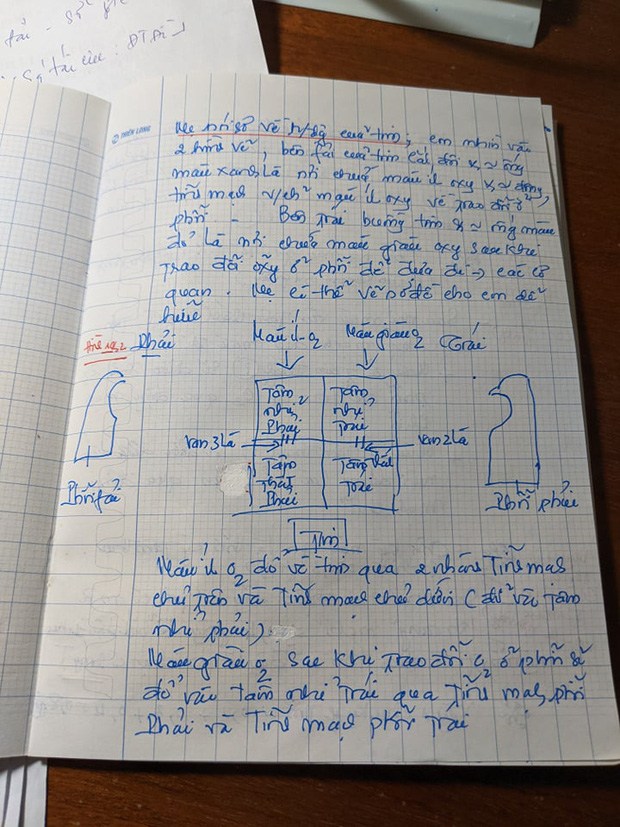 tái - số
Số tái cứu: ĐTĐĐ
THIÊN LONG
Mẹ nói sơ về h/động của tim; em nhìn vào
2 hình vẽ, bên fải của tim cái đôi và ống
màu xanh là nơi chứa máu ít oxy
tĩnh mạch v/ch² máu ít oxy về trao đổi ở
phổi - Bên trái buồng tim và ống màu
đỏ là nơi chứa máu giàu oxy sau khi
trao đổi ôxy ở phổi để đưa đi → các cơ
quan. Mẹ có thể vẽ sơ đồ cho em dễ
hiểu
Máu ít O2 Máu giàu O2 Trái
Phải
Tâm nhĩ Phải
Tâm nhĩ trái
van 3 lá
van 2 lá
Tâm thất Phải
Tâm thất Trái
Phổi fải
Phổi phải
Tim
Máu ít O2 đổ về tim qua 2 nhánh Tĩnh mạch
chủ trên và Tĩnh mạch chủ dưới (đổ vào tâm
nhĩ phải).
Máu giàu O2 sau khi trao đổi O2 ở phổi sẽ
đổ vào tâm nhĩ trái qua Tĩnh mạch phổi
Phải và Tĩnh mạch phổi Trái